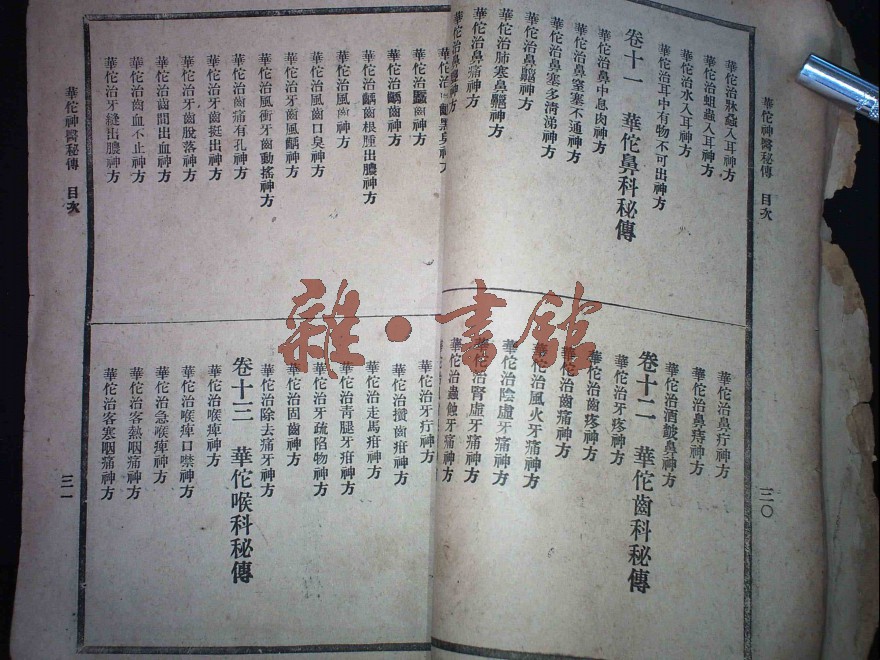 華佗神醫秘傳 目次
三〇
華佗治牀蝨入耳神方
華佗治蛆蟲入耳神方
華佗治水入耳神方
華佗治耳中有物不可出神方
卷十一 華佗鼻科秘傳
華佗治鼻中息肉神方
華佗治鼻窒塞不通神方
華佗治鼻塞多清涕神方
華佗治鼻齆神方
華佗治肺寒鼻齆神方
華佗治鼻痛神方
華佗治鼻鼽神方
華佗治鼻疔神方
華佗治鼻痔神方
華佗治酒皶鼻神方
卷十二 華佗齒科秘傳
華佗治牙疼神方
華佗治齒疼神方
華佗治齒痛神方
華佗治風火牙痛神方
華佗治陰虛牙痛神方
華佗治腎虛牙痛神方
華佗治蟲蝕牙痛神方
華佗治齲齒神方
華佗治齲齒根腫出膿神方
華佗治風齒神方
華佗治風齒口臭神方
華佗治牙齒風齲神方
華佗治風衝牙齒動搖神方
華佗治齒痛有孔神方
華佗治牙齒挺出神方
華佗治牙齒脫落神方
華佗治齒間出血神方
華佗治齒血不止神方
華佗治牙縫出膿神方
華佗治牙疔神方
華佗治攢齒疳神方
華佗治走馬疳神方
華佗治青腿牙疳神方
華佗治牙疏陷物神方
華佗治固齒神方
華佗治除去痛牙神方
卷十三 華佗喉科秘傳
華佗治喉痺神方
華佗治喉痺口噤神方
華佗治急喉痺神方
華佗治客熱咽痛神方
華佗治客寒咽痛神方
華佗神醫秘傳 目次
三一
雜·書館